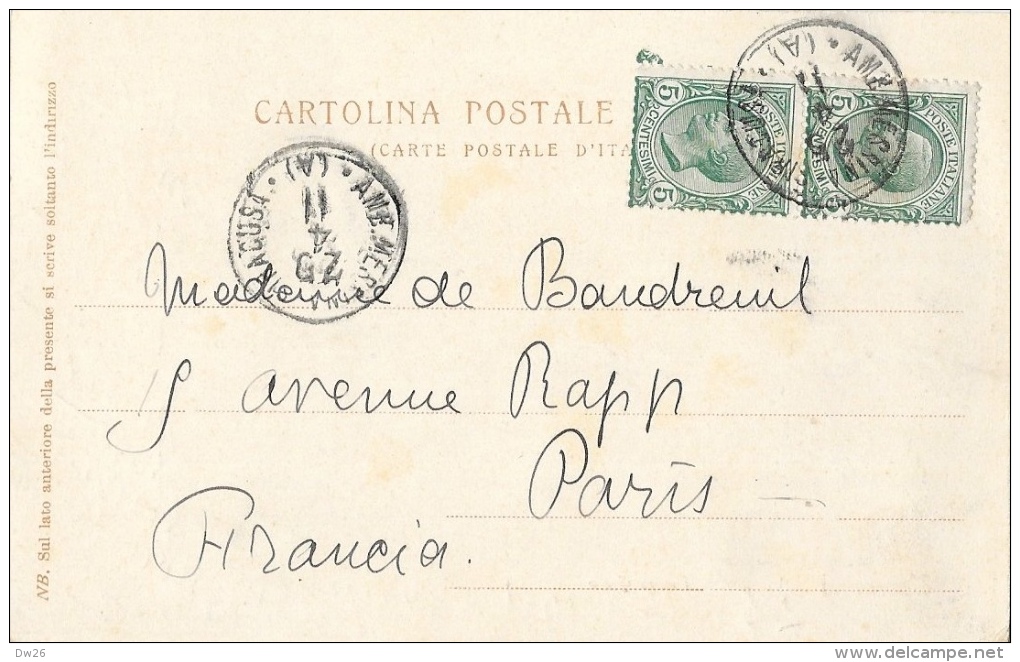 CARTOLINA POSTALE
(CARTE POSTALE D'ITA
NB. Sul lato anteriore della presente si scrive soltanto l'indirizzo
POSTE ITALIANE
5 CENTESIMI 5
POSTE ITALIANE
5
AMB. MES
SIRACUSA (A)
25
4
11
AMB. MES
(A)
11
Madame de Baudreuil
5 avenue Rapp
Paris
Francia.
Dw26
delcampe.net